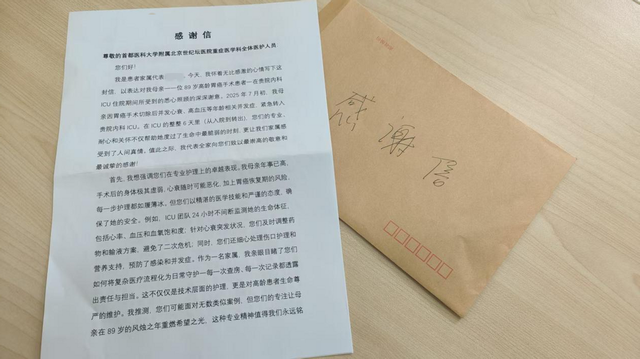 感谢信
尊敬的首都医科大学附属北京世纪坛医院重症医学科全体医护人员
您们好！
我是患者家属代表 ，今天，我怀着无比感恩的心情写下这
封信，以表达对我母亲——位89岁高龄胃癌手术患者一在贵院内科
ICU住院期间所受到的悉心照顾的深深谢意。2025年7月初，我母
亲因胃癌手术切除后并发心衰、高血压等年龄相关并发症，紧急转入
贵院内科ICU。在ICU的整整6天里（从入院到转出），您们的专业、
耐心和关怀不仅帮助她度过了生命中最脆弱的时刻，更让我们家属感
受到了人间真情。值此之际，我代表全家向您们致以最崇高的敬意和
最诚挚的感谢！
首先，我想强调您们在专业护理上的卓越表现。我母亲年事已高，
手术后的身体极其虚弱，心衰随时可能恶化，加上胃癌恢复期的风险，
每一步护理都如履薄冰。但您们以精湛的医学技能和严谨的态度，确
保了她的安全。例如，ICU团队24小时不间断监测她的生命体征，
包括心率、血压和血氧饱和度；针对心衰突发状况，您们及时调整药
物和输液方案，避免了二次危机；同时，您们还细心处理伤口护理和
营养支持，预防了感染和并发症。作为一名家属，我亲眼目睹了您们
如何将复杂医疗流程化为日常守护一每一次查房、每一次记录都透露
出责任与担当。这不仅仅是技术层面的护理，更是对高龄患者生命尊
严的维护。我推测，您们可能面对无数类似案例，但您们的专注让母
亲在89岁的风烛之年重燃希望之光，这种专业精神值得我们永远铭
感谢信